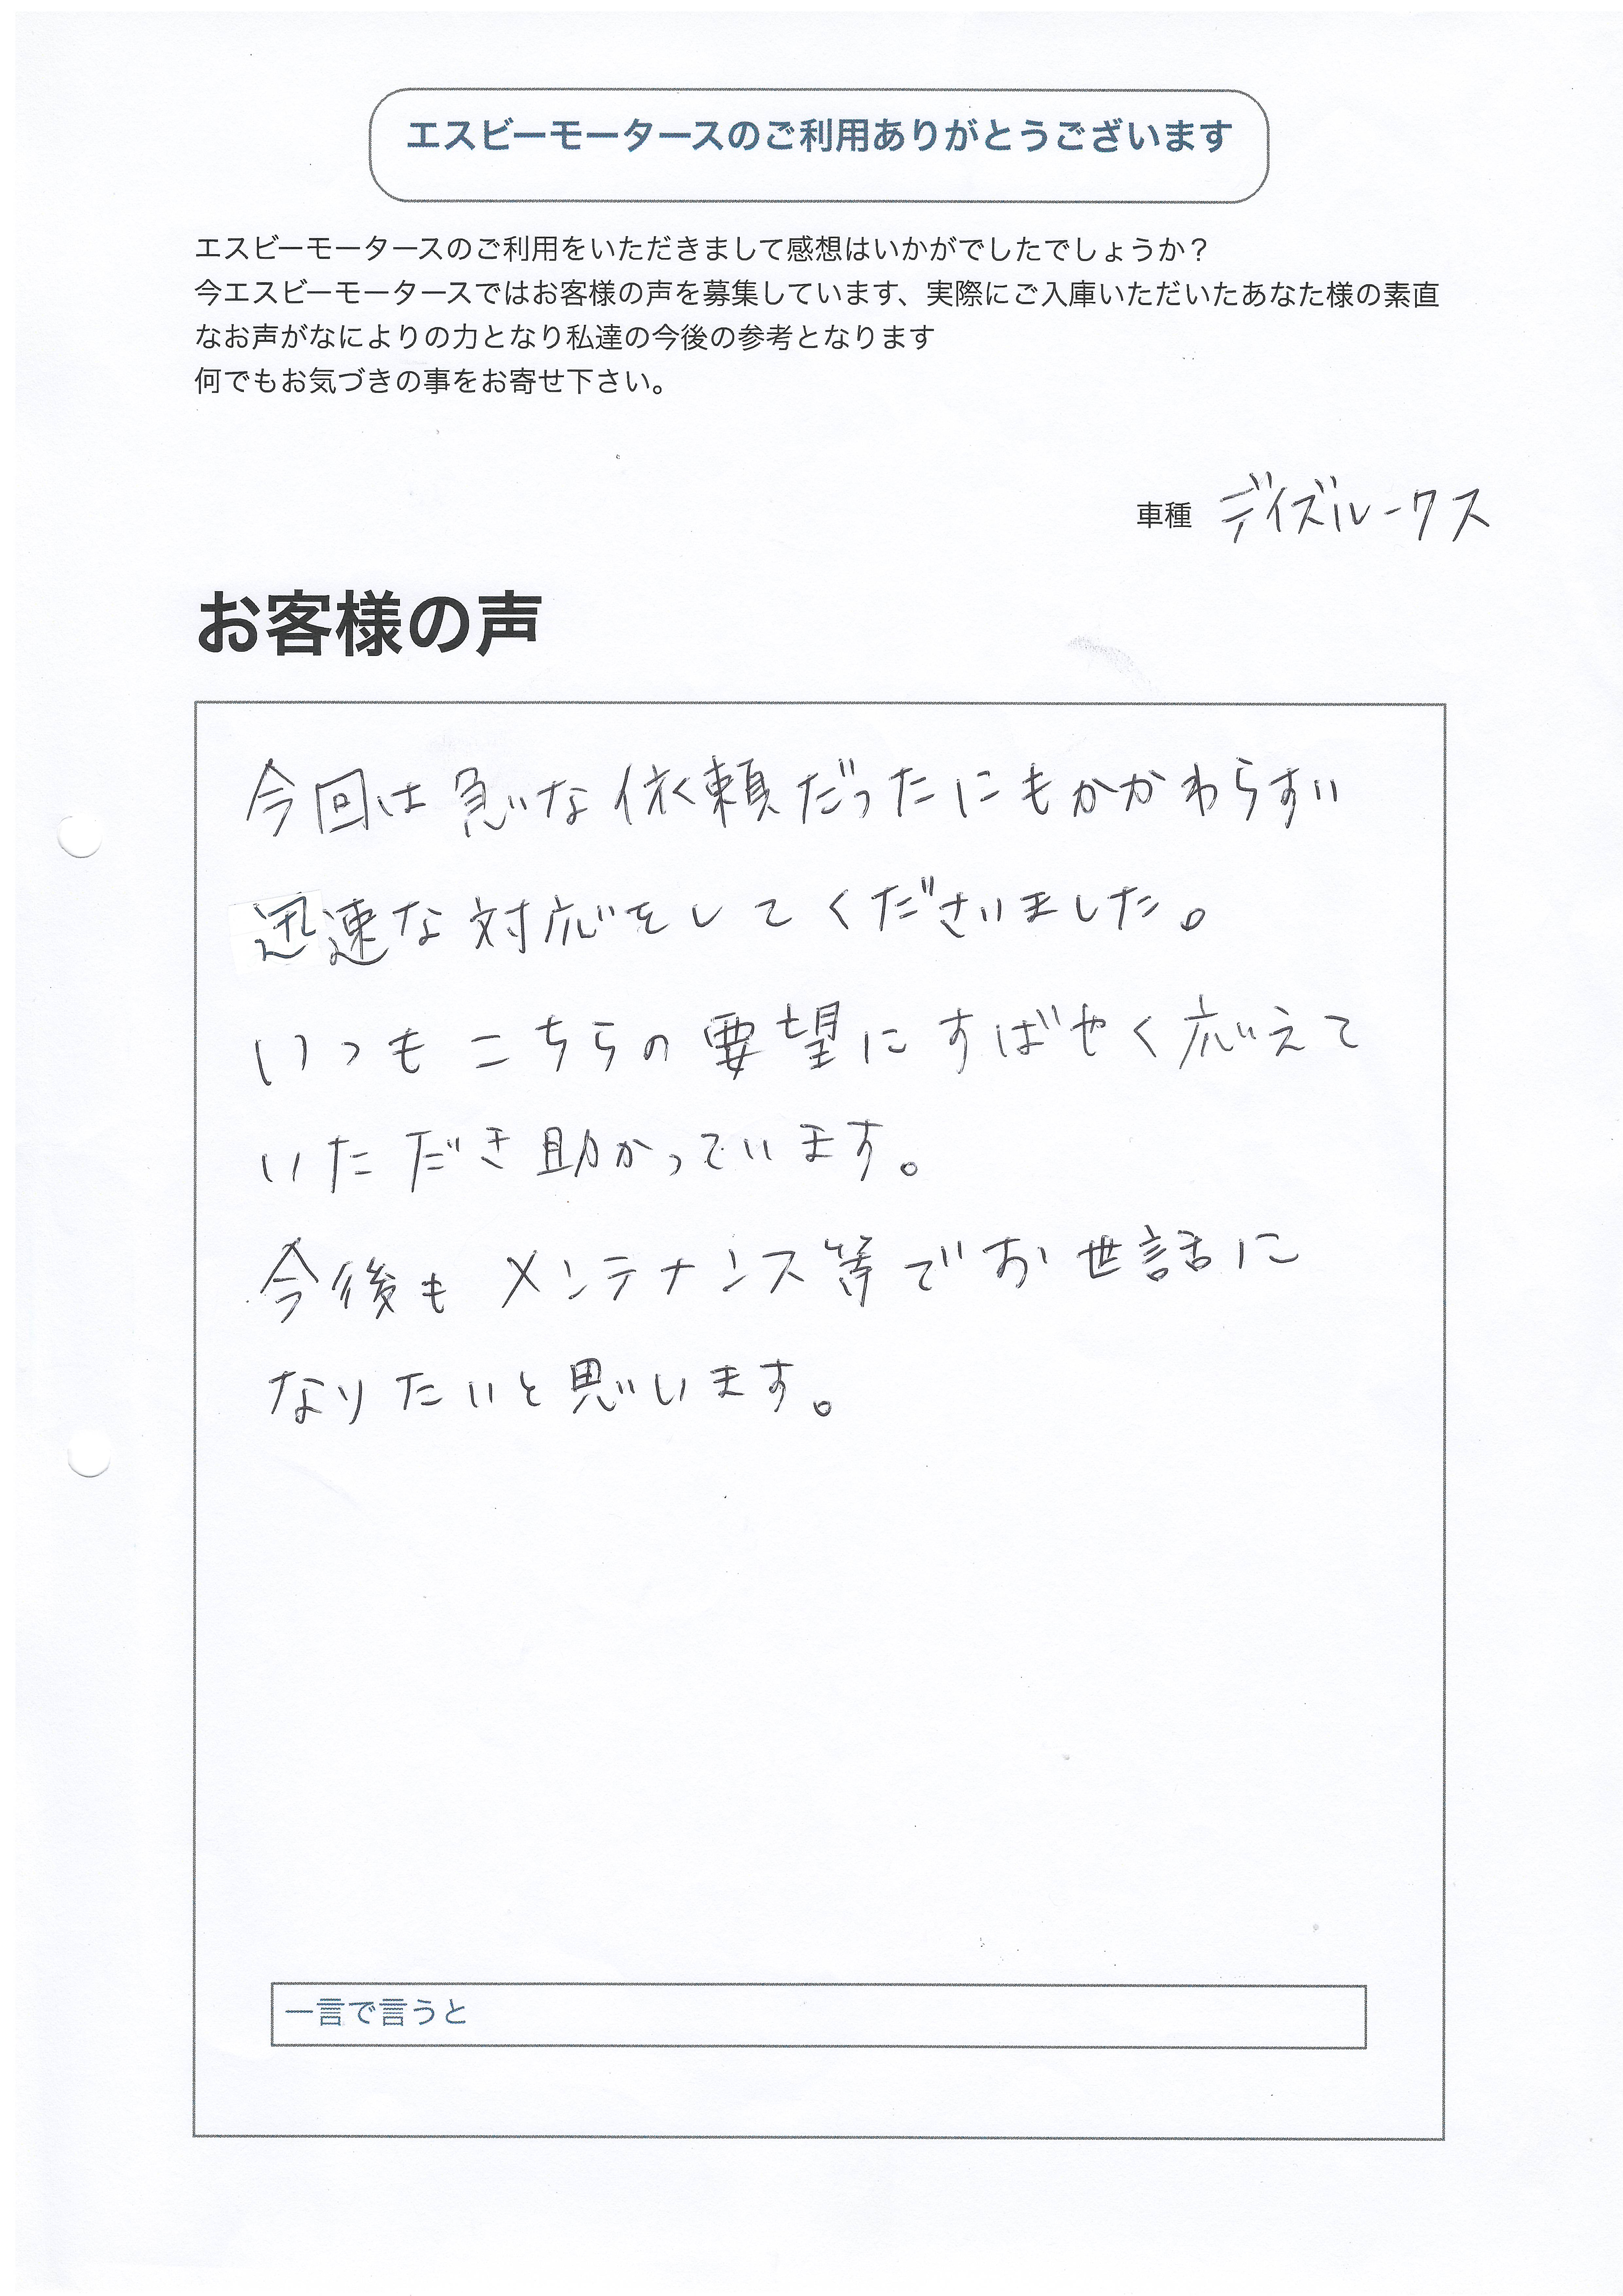 エスビーモータースのご利用ありがとうございます
エスビーモータースのご利用をいただきまして感想はいかがでしたでしょうか？
今エスビーモータースではお客様の声を募集しています、実際にご入庫いただいたあなた様の素直
なお声がなによりの力となり私達の今後の参考となります
何でもお気づきの事をお寄せ下さい。
車種 デイズルークス
お客様の声
今回は急な依頼だったにもかかわらず
迅速な対応をしてくださいました。
いつもこちらの要望にすばやく応えて
いただき助かっています。
今後もメンテナンス等でお世話に
なりたいと思います。
一言で言うと